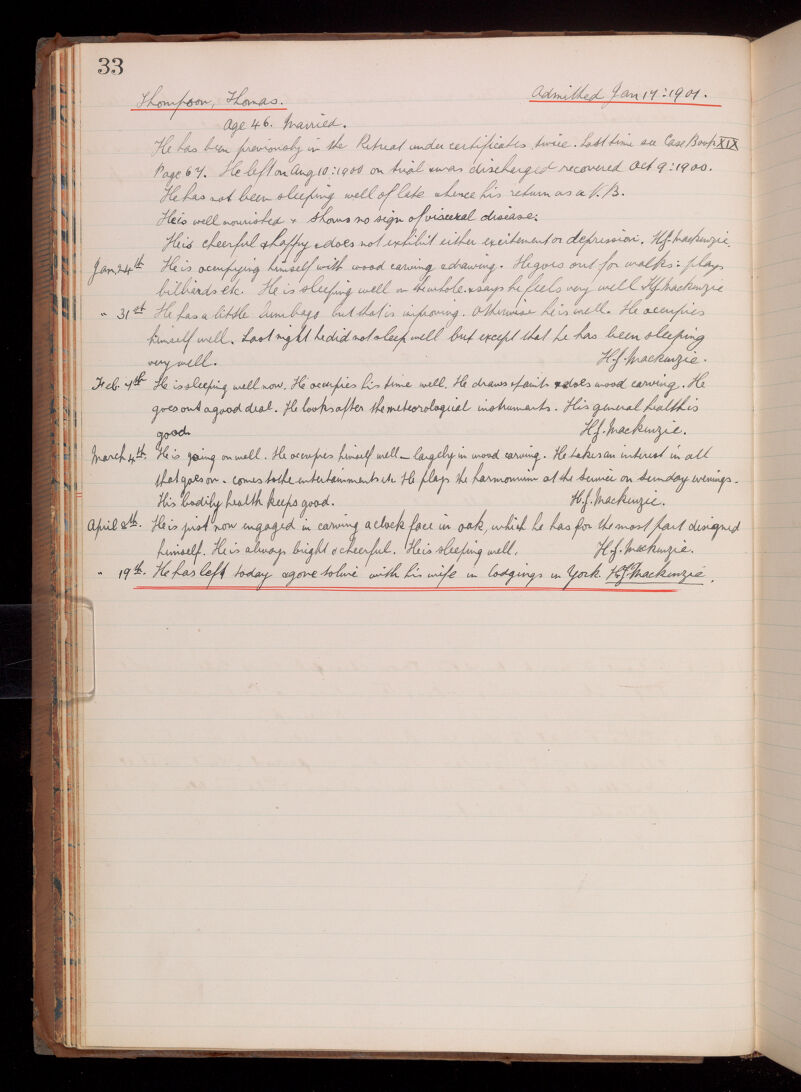 33
Thompson, Thomas. Admitted Jan 17:1901.
Age 46. Married.
He has been previously in the Retreat under certificates twice. Last time see Case Book XIX
Page 67. He left on Aug 10:1900 on trial & was discharged recovered Oct 9:1900.
He has not been sleeping well of late & hence his return as a V.B.
He is well nourished & shows no sign of visceral disease.
He is cheerful & happy & does not exhibit either excitement or depression. H.J. Mackenzie.
Jan. 24th He is occupying himself with wood carving & drawing. He goes out for walks: plays
billiards etc. He is sleeping well on the whole & says he feels very well H.J. Mackenzie
" 31st He has a little lumbago but that is improving. Otherwise he is well. He occupies
himself well. Last night he did not sleep well but except that he has been sleeping
very well. H.J. Mackenzie.
Feb. 7th He is sleeping well now. He occupies his time well. He draws & paints & does wood carving. He
goes out a good deal. He looks after the meteorological instruments. His general health is
good. H.J. Mackenzie.
March 4th. He is going on well. He occupies himself well – largely in wood carving. He takes an interest in all
that goes on - comes to the entertainments etc He plays the harmonium at the Service on Sunday evenings.
His bodily health keeps good. H.J. Mackenzie.
April 8th. He is just now engaged in carving a clock face in oak, which he has for the most part designed
himself. He is always bright & cheerful. He is sleeping well. H.J. Mackenzie.
" 19th. He has left today & gone to live with his wife in lodgings in York. H.J. Mackenzie.